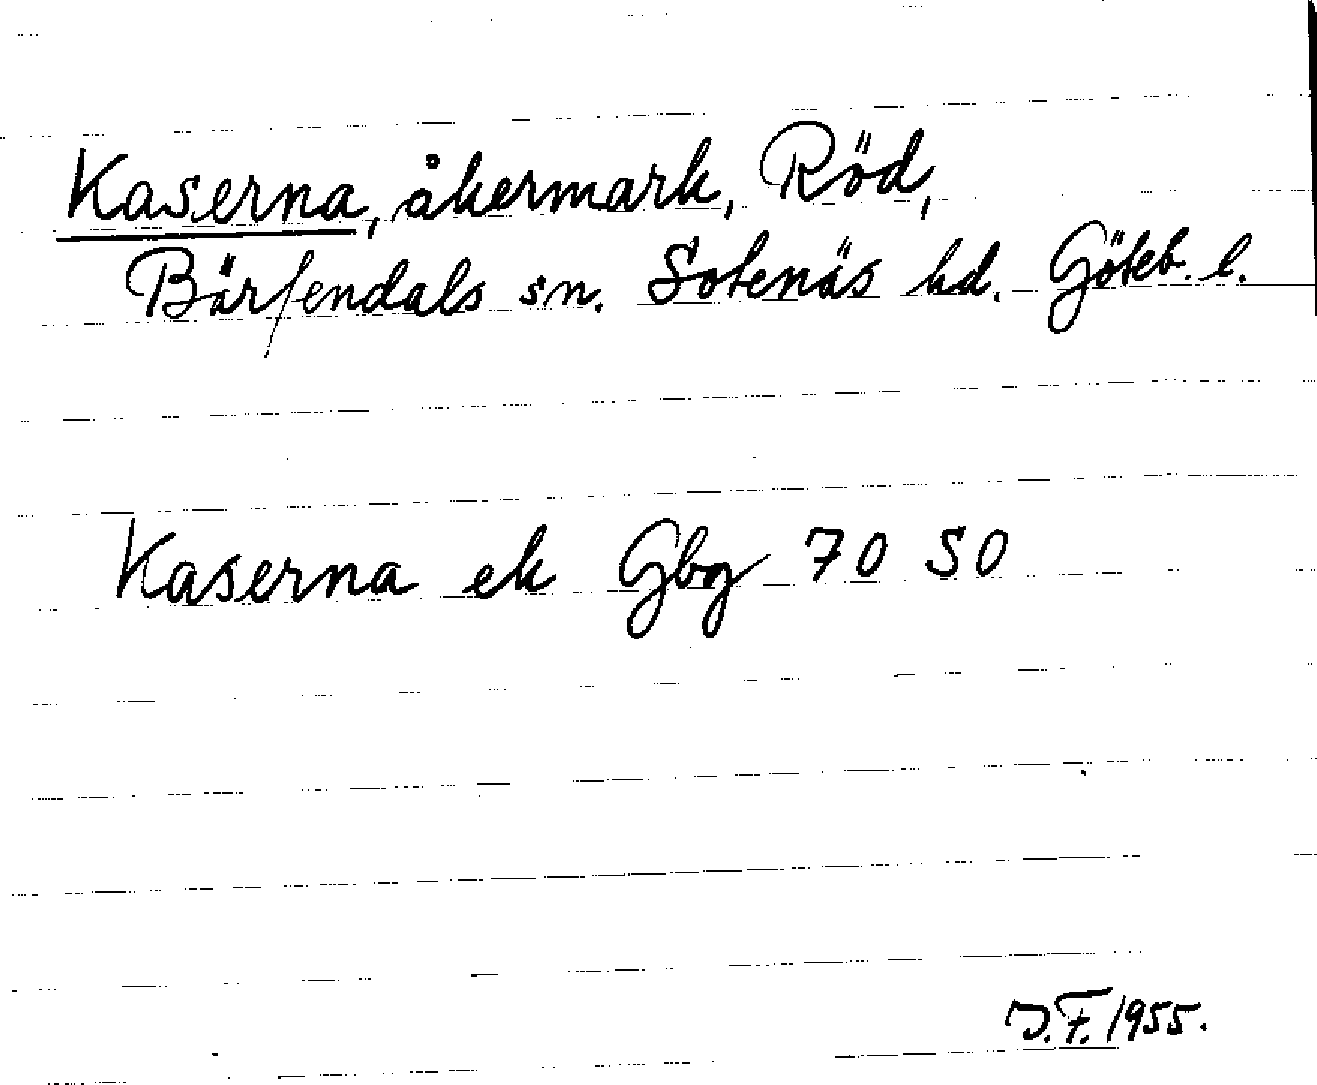 Kaserna, åkermark, Röd,
Bärfendals sn. Sotenäs hd. Göteb. l.
Kaserna ek Gbg 70 SO
J.F. 1955.